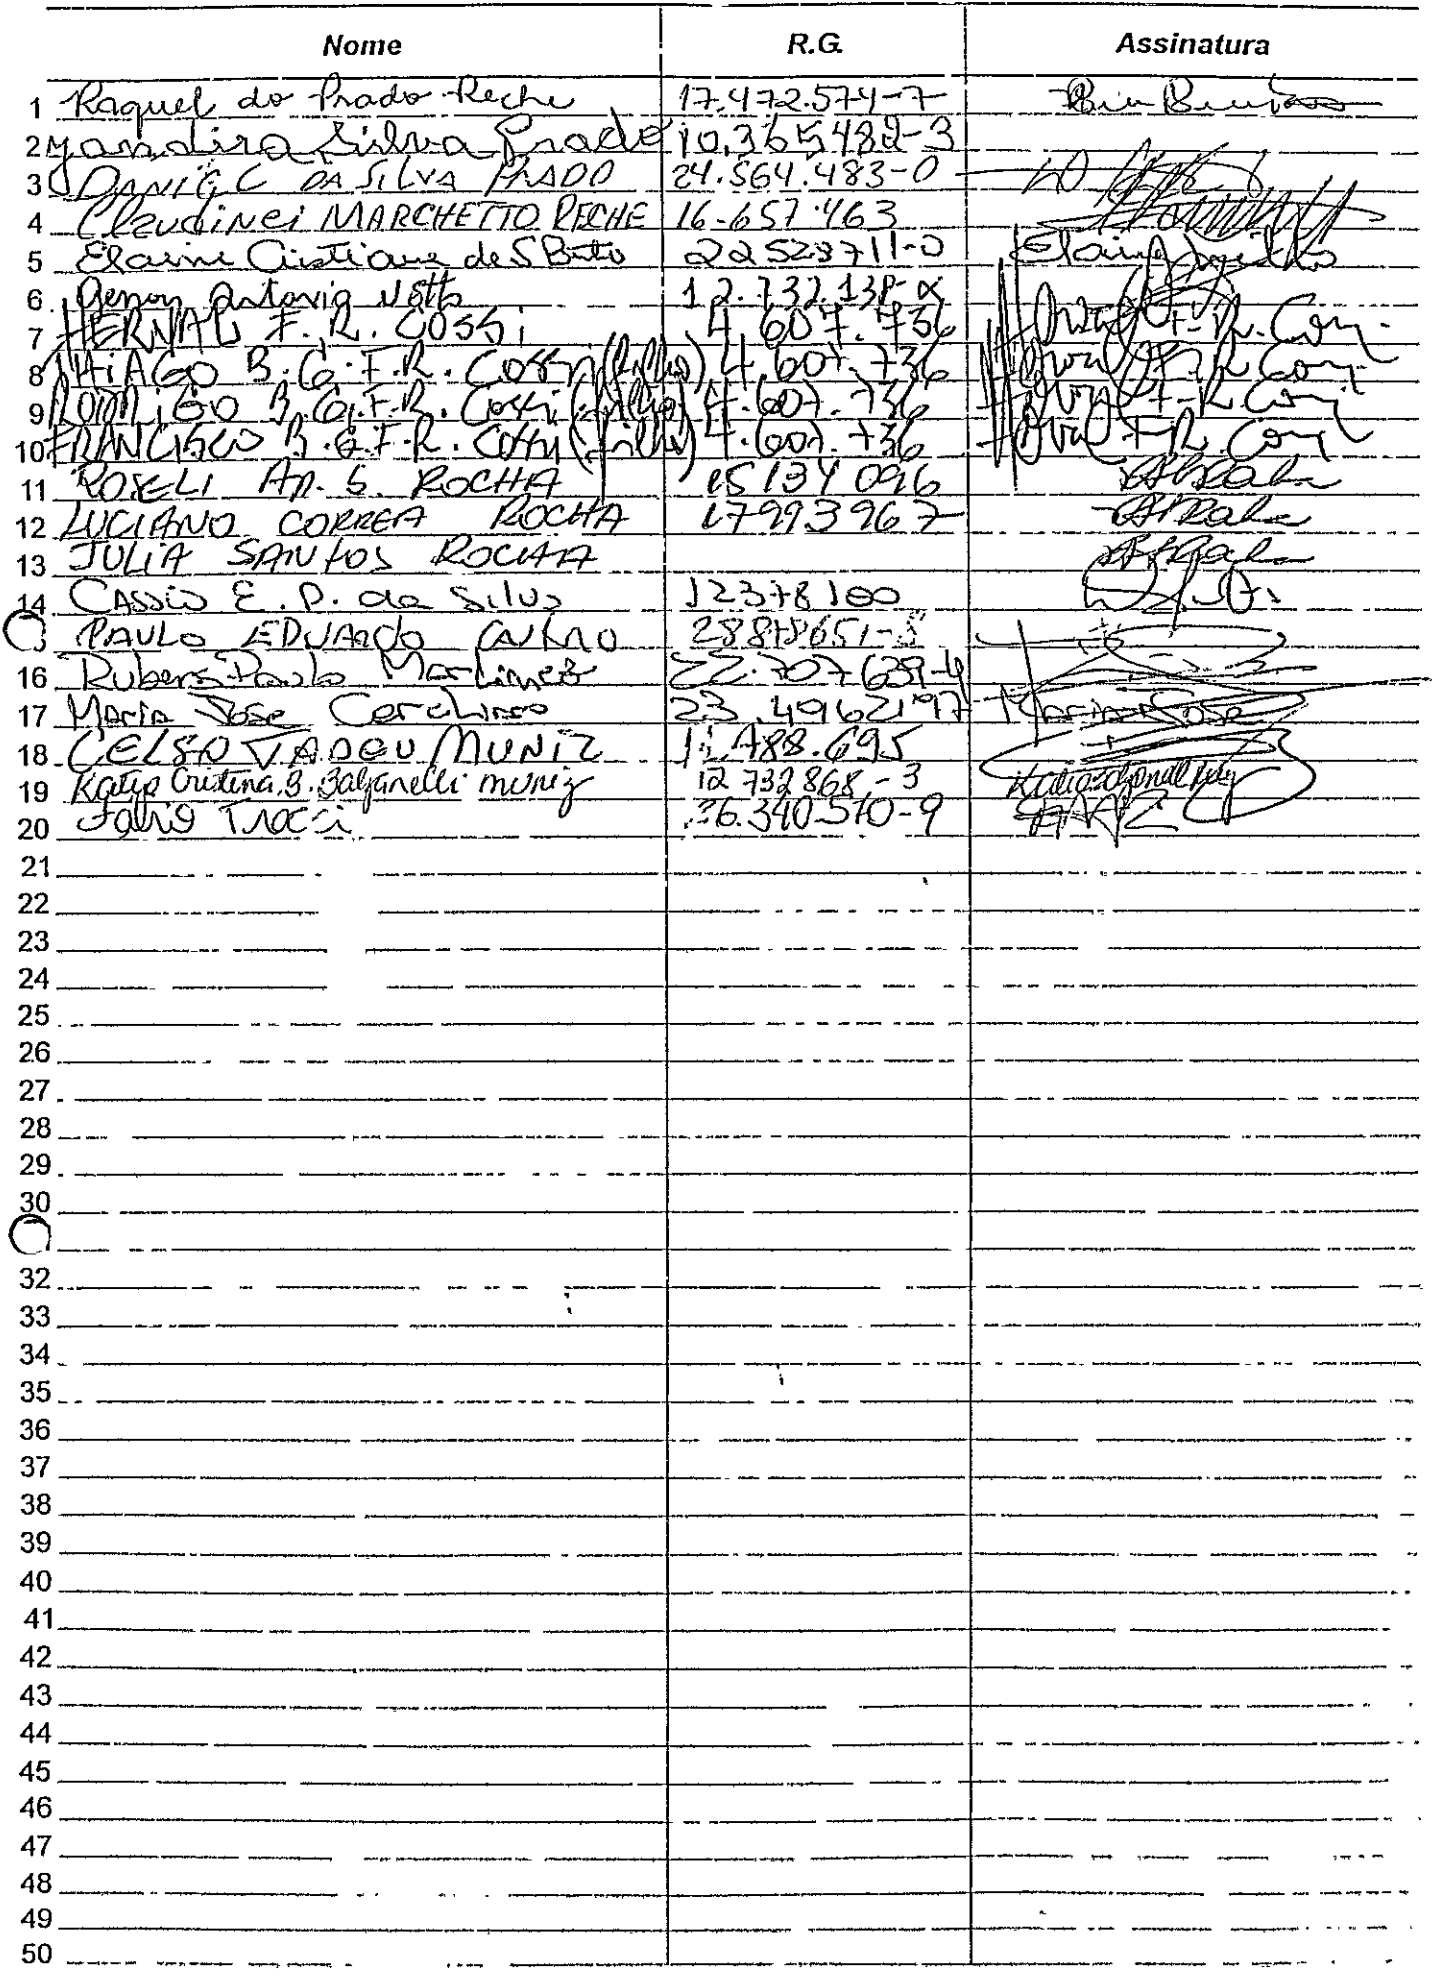 Nome R.G. Assinatura
1 Raquel do Prado Reche 17.472.574-7
2 Jandira Silva Prado 10.365482-3
3 DANIG C DA SILVA PRADO 24.564.483-0
4 Claudinei MARCHETTO RECHE 16-657.463
5 Elaine Cristiane de S Brito 22523711-0 Elaine
6 Gerson Antonio Notto
7 HERVAL F. R. COSSi 4.607.736 Herval F. R. Cossi
8 THIAGO B. G. F. R. Cossi (filho) 4.607.736 Herval F. R. Cossi
9 RODRiGO B. G. F. R. Cossi (filho) 4.607.736 Herval F. R. Cossi
10 FRANCISCO B. G. F. R. Cossi (filho) 4.607.736 Herval F. R. Cossi
11 ROSELI Ap. S. ROCHA 15134096
12 LUCIANO CORREA ROCHA 17993967
13 JULIA SANTOS ROCHA
14 Cassio E. P. da Silva 12378100
PAULO EDUARDO
16 Rubens Paulo Martinez 22.707639-4
17 Maria Jose 23.4962197 Maria Jose
18 CELSO TADEU MUNIZ
19 Katia Cristina B. Balganelli muniz 12 732 868-3
20 Fabio Trocci 36.340.570-9
21
22
23
24
25
26
27
28
29
30
32
33
34
35
36
37
38
39
40
41
42
43
44
45
46
47
48
49
50